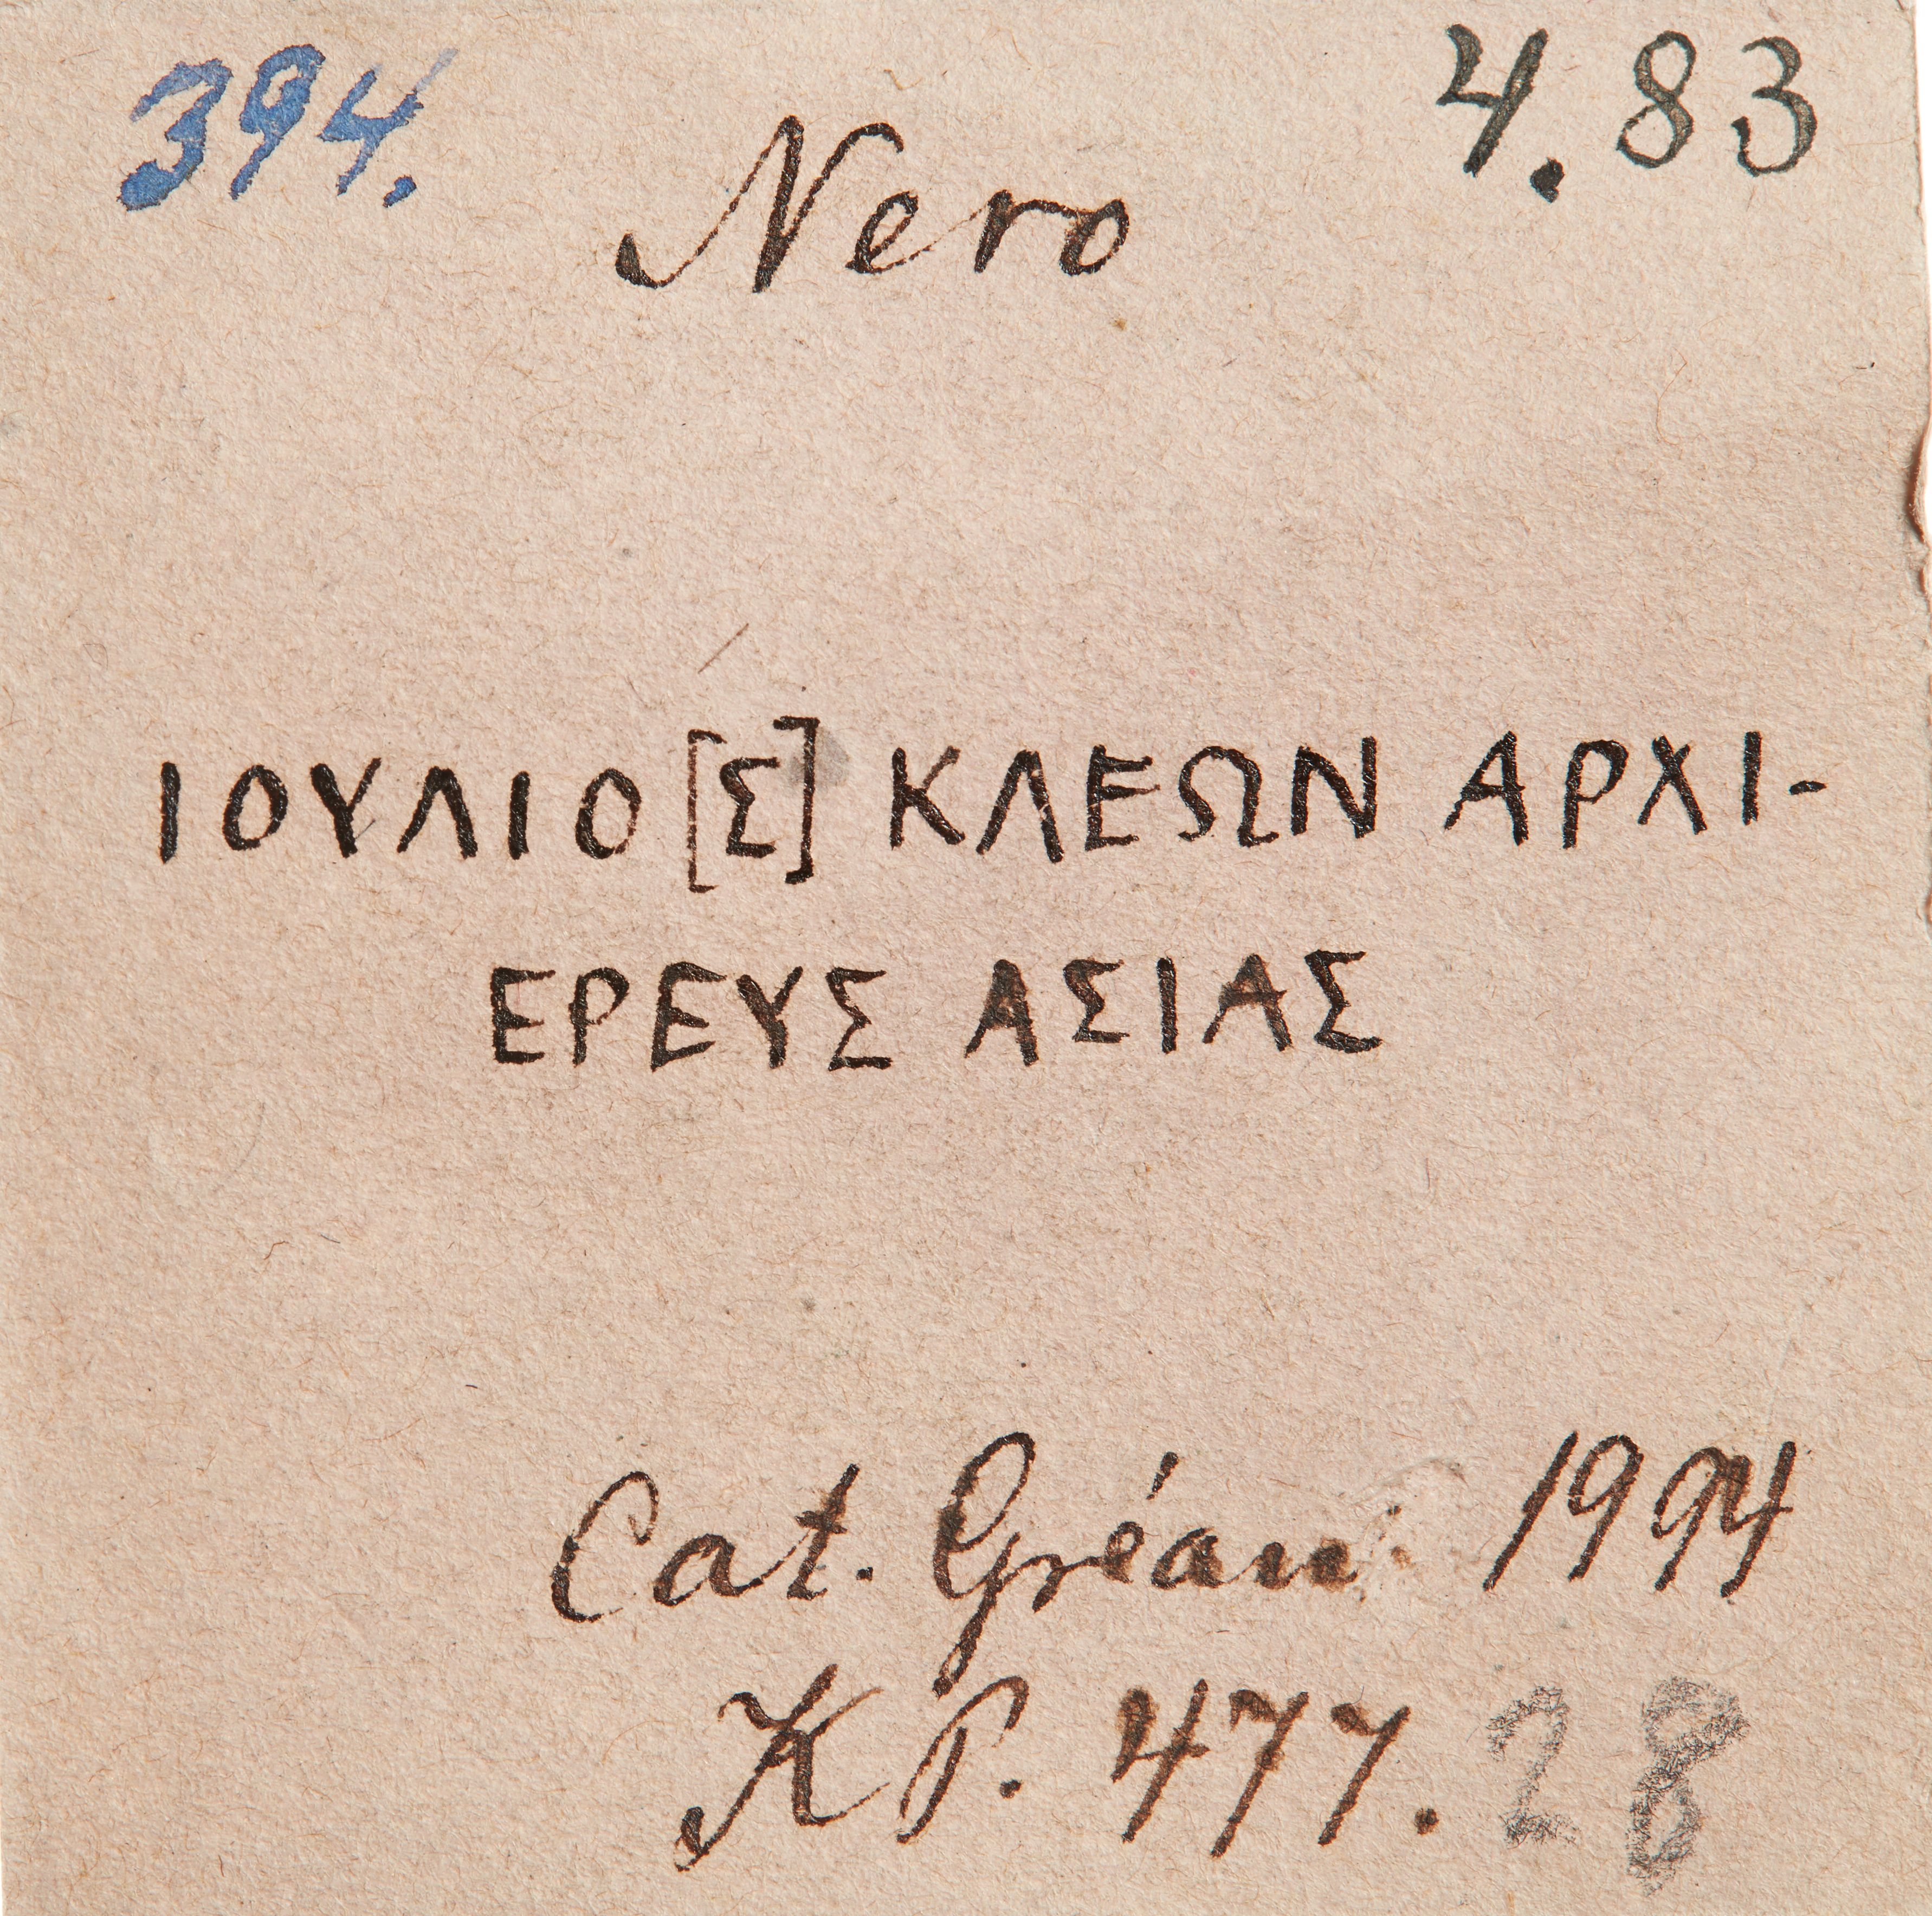 394. 4.83
Nero
ΙΟΥΛΙΟ[Σ] ΚΛΕΩΝ ΑΡΧΙ-
ΕΡΕΥΣ ΑΣΙΑΣ
Cat. Gréau 1994
KP. 477. 28